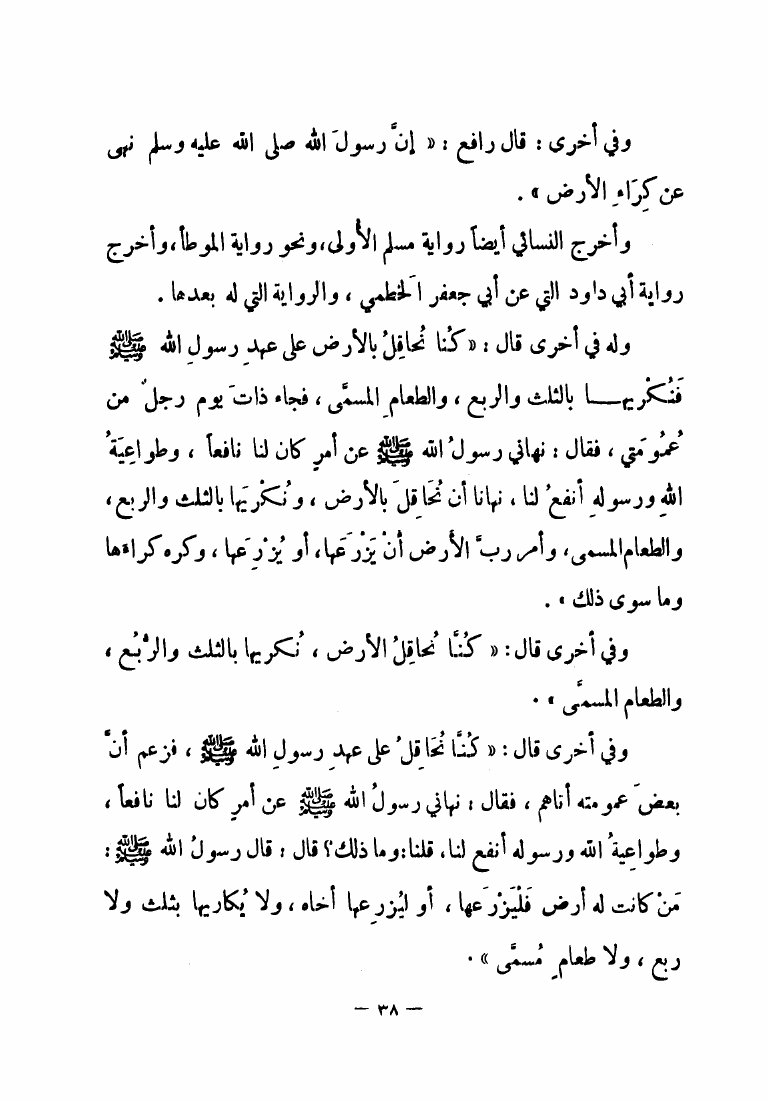 وفي أخرى : قال رافع : « إنَّ رسولَ الله صلى الله عليه وسلم نهى
عن كِرَاءِ الأرض » .
وأخرج النسائي أيضاً رواية مسلم الأولى، ونحو رواية الموطأ، وأخرج
رواية أبي داود التي عن أبي جعفر الَخطمي ، والرواية التي له بعدها .
وله في أخرى قال : « كُنا نُحاقِلُ بالأرض على عهدِ رسولِ الله ﷺ
فَنُكْريهـــا بالثلث والربع ، والطعامِ المسمَّى ، فجاء ذاتَ يوم رجلٌ من
عُمُومَتي ، فقال : نهاني رسولُ الله ﷺ عن أمرٍ كان لنا نافعاً ، وطواعِيَةُ
اللهِ ورسولهِ أنفعُ لنا ، نهانا أن نُحَاقلَ بالأرض ، ونُكْريَها بالثلث والربع ،
والطعام المسمى، وأمر ربَّ الأرض أنْ يَزْرَعَها، أو يُزْرِعَها ، وكره كراءها
وما سوى ذلك » .
وفي أخرى قال : « كُنَّا نُحاقِلُ الأرض ، نُكريها بالثلث والرُّبُع ،
والطعام المسمَّى » .
وفي أخرى قال : « كُنَّا نُحَاقلُ على عهدِ رسولِ الله ﷺ ، فزعم أنَّ
بعضَ عمومته أتاهم ، فقال : نهاني رسولُ الله ﷺ عن أمرٍ كان لنا نافعاً ،
وطواعِيةُ الله ورسوله أنفع لنا ، قلنا : وما ذلك ؟ قال : قال رسولُ الله ﷺ :
مَنْ كانت له أرض فَلْيَزْرَعها ، أو ليُزرِعها أخاه ، ولا يُكاريها بثلث ولا
ربع ، ولا طعامٍ مُسمَّى » .
— ٣٨ —